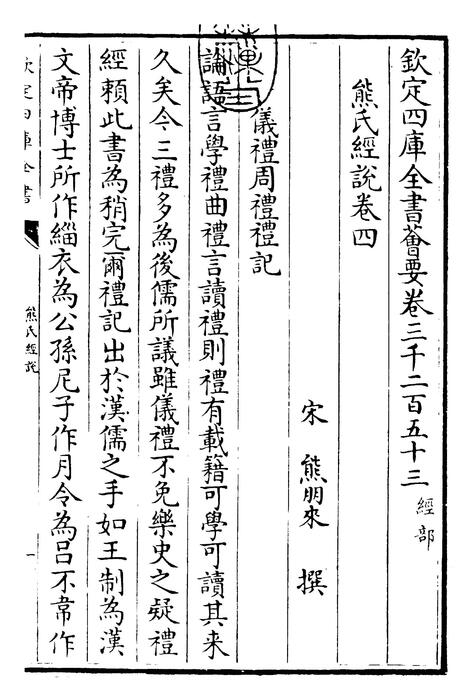 欽定四庫全書薈要卷三千二百五十三 經部
熊氏經說卷四
宋 熊朋來 撰
儀禮周禮禮記
論語言學禮曲禮言讀禮則禮有載籍可學可讀其来
久矣今三禮多為後儒所議雖儀禮不免樂史之疑禮
經頼此書為稍完爾禮記出於漢儒之手如王制為漢
文帝博士所作緇衣為公孫尼子作月令為吕不韋作
欽定四庫全書
熊氏經說
一